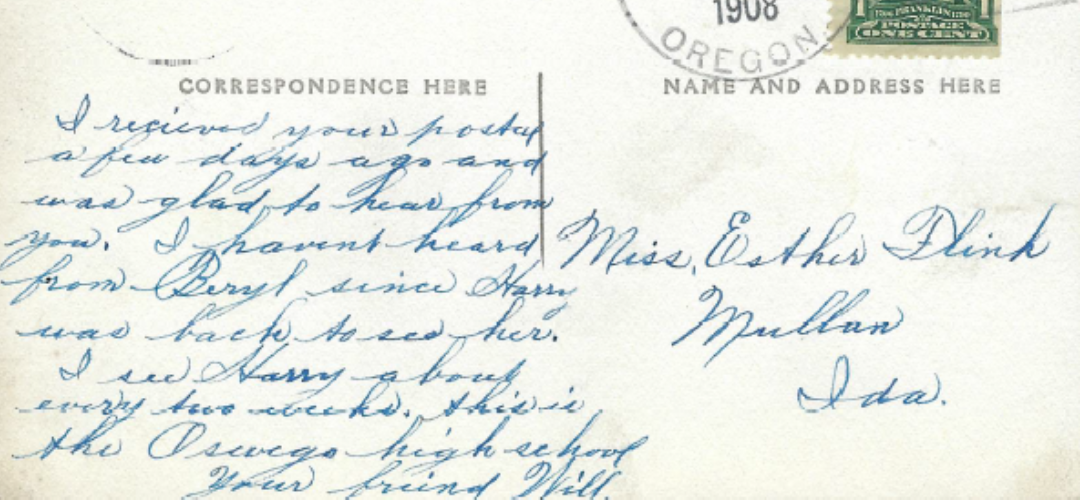 1908
OREGON
1706 FRANKLIN 1790
POSTAGE
ONE CENT
CORRESPONDENCE HERE
NAME AND ADDRESS HERE
I recieved your postal
a few days ago and
was glad to hear from
you. I havent heard
from Beryl since Harry
was back to see her.
I see Harry about
every two weeks. this is
the Oswego high school
Your friend Will.
Miss. Esther Flink
Mullan
Ida.